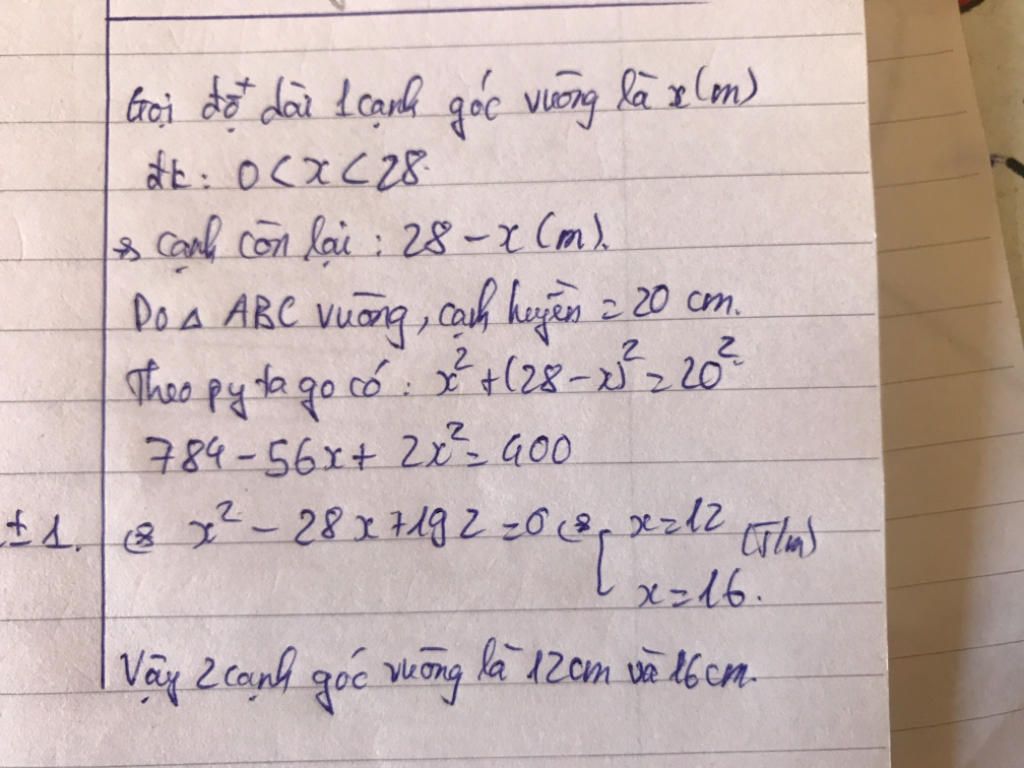 Gọi độ dài 1 cạnh góc vuông là x (m)
đk: 0 < x < 28.
⇒ cạnh còn lại: 28 - x (m).
Do Δ ABC vuông, cạnh huyền = 20 cm.
Theo pytago có: x² + (28 - x)² = 20².
784 - 56x + 2x² = 400
± 1. ⇔ x² - 28x + 192 = 0 ⇔ [ x = 12 (T/m)
x = 16.
Vậy 2 cạnh góc vuông là 12cm và 16cm.